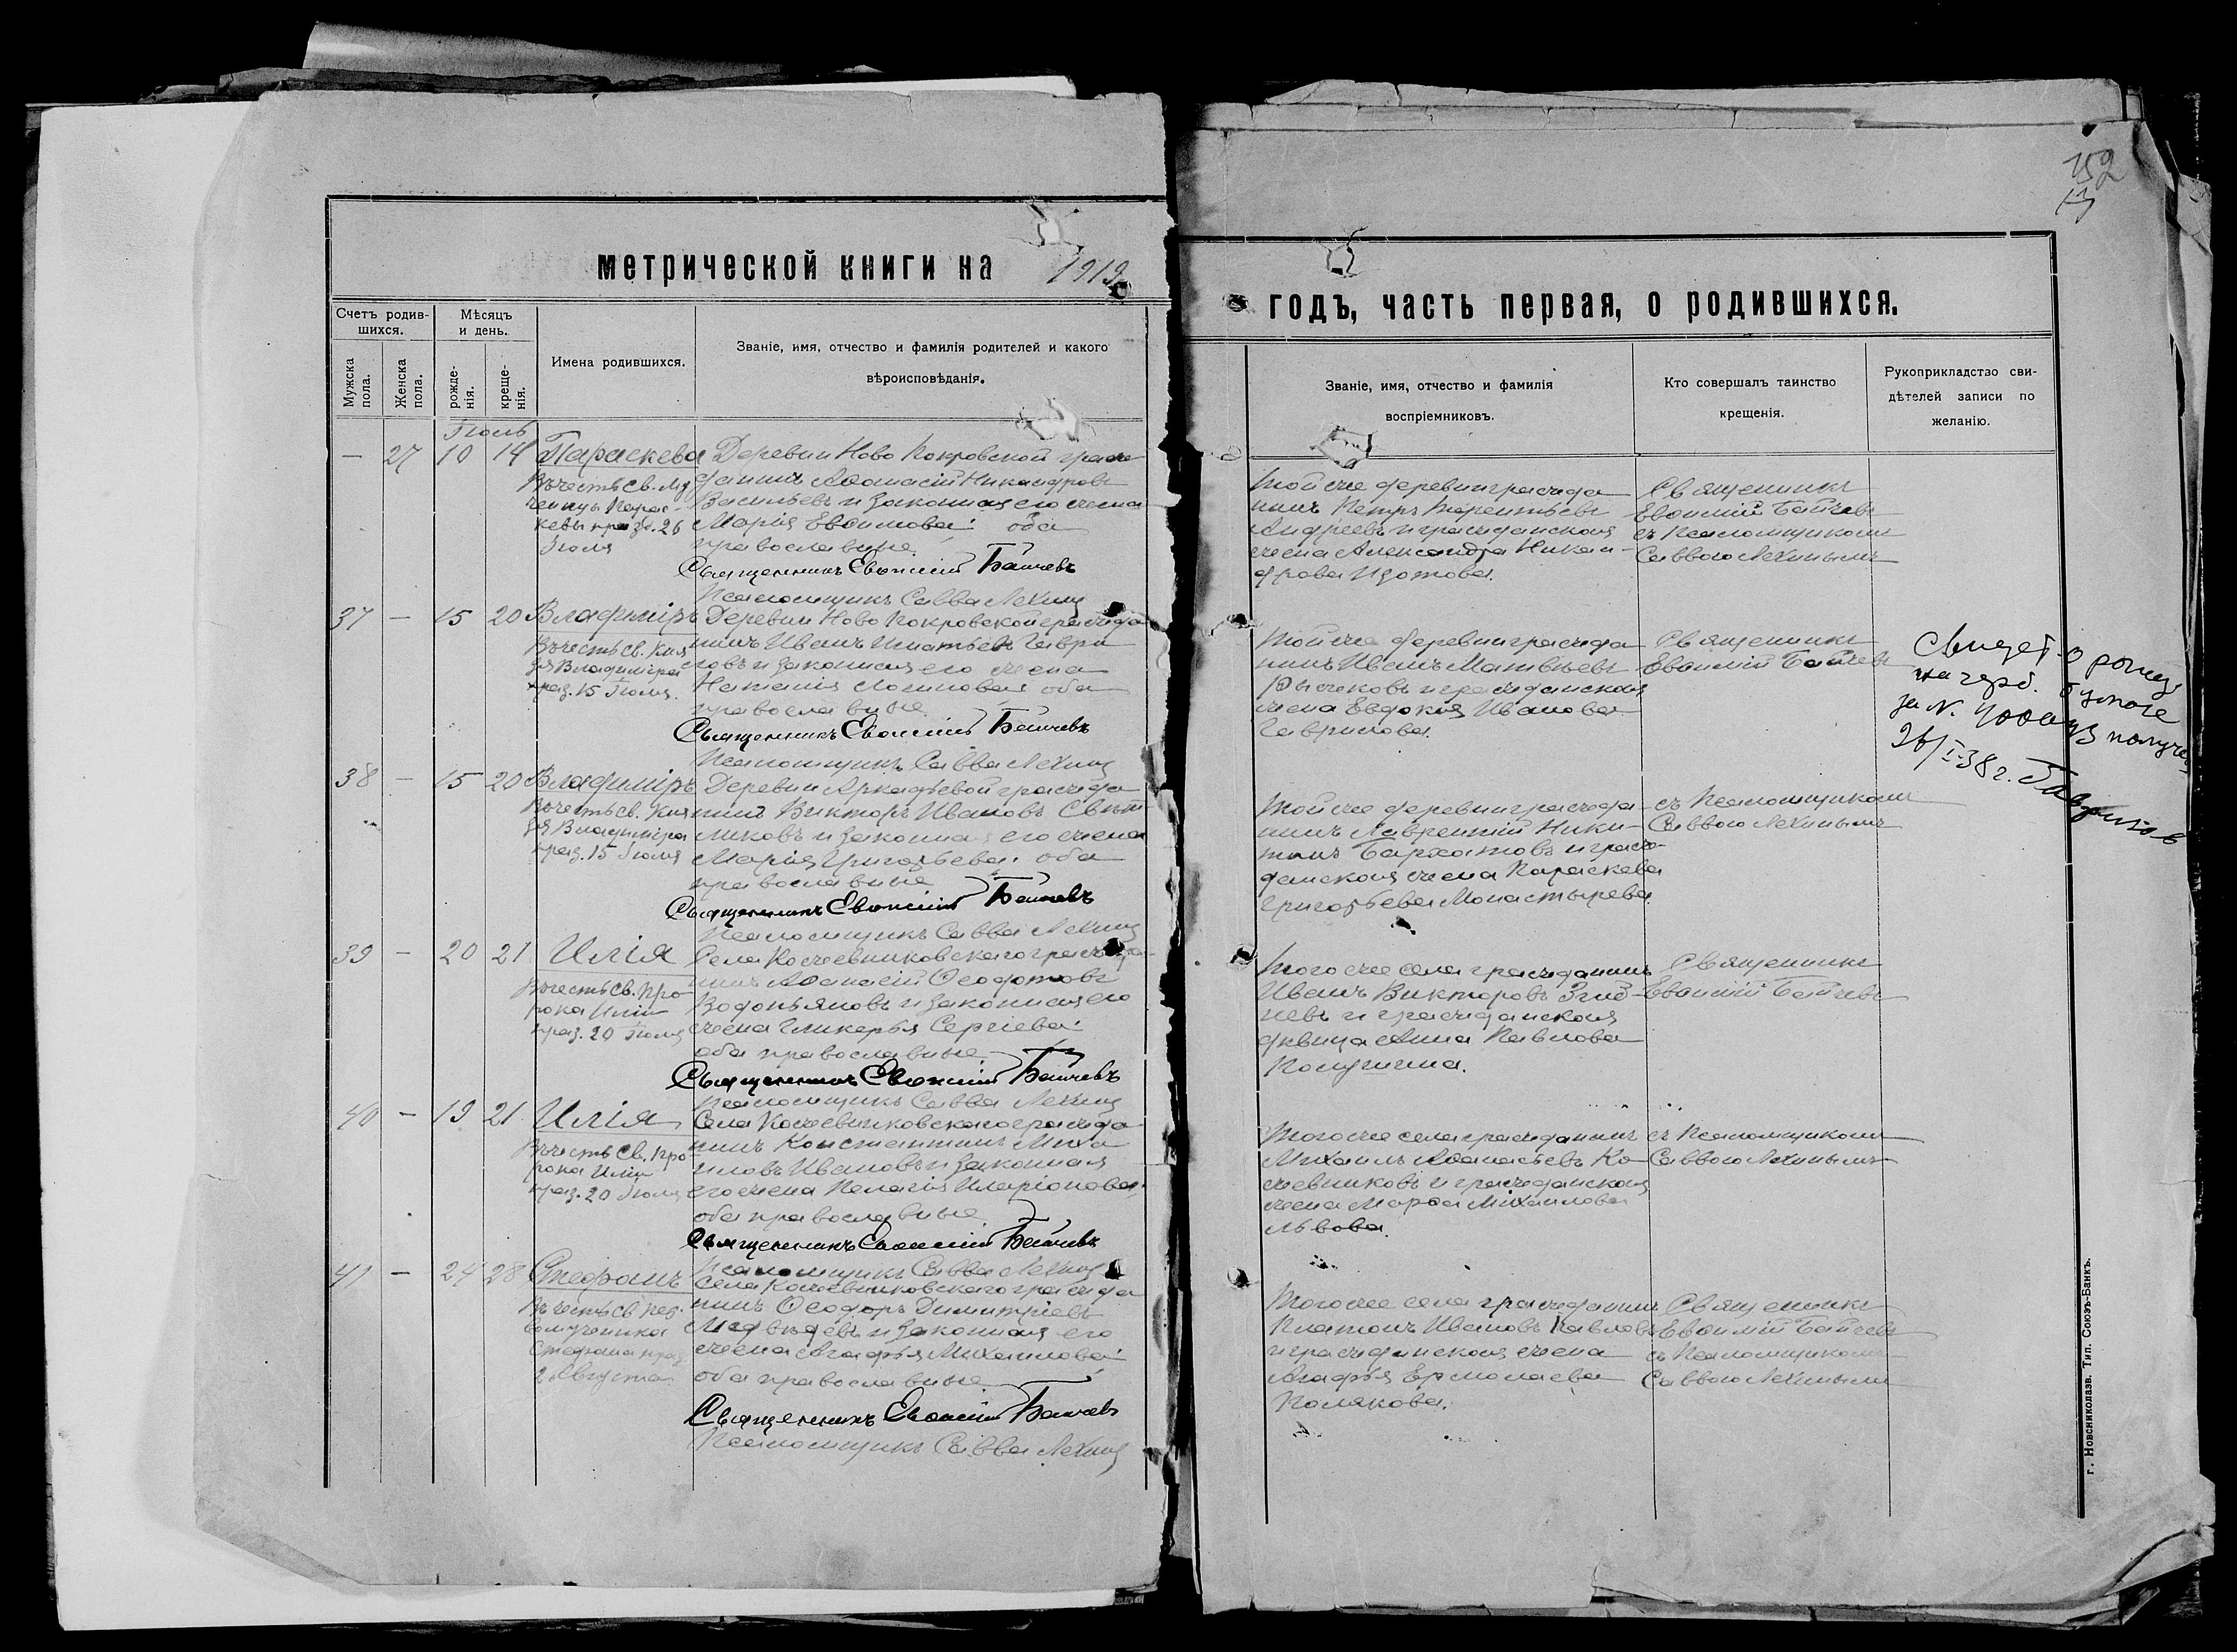 152
метрической книги на 1919
годъ, часть первая, о родившихся.
Счетъ родив-
шихся.
Мѣсяцъ
и день.
Мужска
пола.
Женска
пола.
рожде-
нія.
креще-
нія.
Имена родившихся.
Званіе, имя, отчество и фамилія родителей и какого
вѣроисповѣданія.
Званіе, имя, отчество и фамилія
воспріемниковъ.
Кто совершалъ таинство
крещенія.
Рукоприкладство сви-
дѣтелей записи по
желанію.
Іюль
— 27 10 14 Параскева
Въ честь св. му
ченицы Парас-
кевы празд. 26
Іюля
Деревни Ново Покровской граж
данинъ Аѳанасій Никандровъ
Васильевъ и законная его жена
Марія Евѳимова: оба
православные.
Священникъ Евѳимій Баичевъ
Псаломщикъ Савва Лехинъ
Той же деревни гражда
нинъ Петръ Терентьевъ
Андреевъ и гражданская
жена Александра Никан-
дрова Изотова.
Священникъ
Евѳимій Баичевъ
съ Псаломщикомъ
Саввою Лехинымъ
37 — 15 20 Владиміръ
Въ честь св. Кня
зя Владиміра
празд. 15 Іюля.
Деревни Ново Покровской гражда
нинъ Иванъ Игнатьевъ Гаври
ловъ и законная его жена
Наталія Логинова: оба
православные
Священникъ Евѳимій Баичевъ
Псаломщикъ Савва Лехинъ
Той же деревни гражда
нинъ Иванъ Матвѣевъ
Рычковъ и гражданская
жена Евдокія Иванова
Гаврилова.
Священникъ
Евѳимій Баичевъ
Свидет. о рожд.
на герб. бумаге
за N. получ
26/I-38 г. Гаврилов
38 — 15 20 Владиміръ
Въ честь св. Кня
зя Владиміра
празд. 15 Іюля
Деревни Аркадьевой гражда
нинъ Викторъ Ивановъ
и законная его жена
Марія Григорьева: оба
православные
Священникъ Евѳимій Баичевъ
Псаломщикъ Савва Лехинъ
Той же деревни гражда-
нинъ Лаврентій Ники-
тинъ Бархатовъ и граж-
данская жена Параскева
Григорьева Монастырева
съ Псаломщикомъ
Саввою Лехинымъ
39 — 20 21 Илія
Въ честь св. Про-
рока Иліи
празд. 20 Іюля
Села Кожевниковскаго гражда-
нинъ Аѳанасій Ѳеодотовъ
Водопьяновъ и законная его
жена Гликерья Сергіева:
оба православные
Священникъ Евѳимій Баичевъ
Псаломщикъ Савва Лехинъ
Того же села гражданинъ
Иванъ Викторовъ
и гражданская
дѣвица Анна Павлова
Священникъ
Евѳимій Баичевъ
40 — 19 21 Илія
Въ честь Св. Про-
рока Иліи
празд. 20 Іюля
Села Кожевниковскаго гражда
нинъ Константинъ Миха
иловъ Ивановъ и законная
его жена Пелагія Иларіонова:
оба православные
Священникъ Евѳимій Баичевъ
Псаломщикъ Савва Лехинъ
Того же села гражданинъ
Михаилъ Аѳанасьевъ Ко-
жевниковъ и гражданская
жена Марѳа Михаилова
Львова.
съ Псаломщикомъ
Саввою Лехинымъ
41 — 24 28 Стефанъ
Въ честь св. Пер.
вомученика
Стефана праз
2 Августа
Села Кожевниковскаго гражда
нинъ Ѳеодоръ Димитріевъ
Медвѣдевъ и законная его
жена Агафья Михаилова:
оба православные
Священникъ Евѳимій Баичевъ
Псаломщикъ Савва Лехинъ
Того же села гражданинъ
Платонъ Ивановъ Павловъ
и гражданская жена
Агафья Ермолаева
Полякова.
Священникъ
Евѳимій Баичевъ
съ Псаломщикомъ
Саввою Лехинымъ
г. Новониколаевъ. Тип. Союзъ-Банкъ.